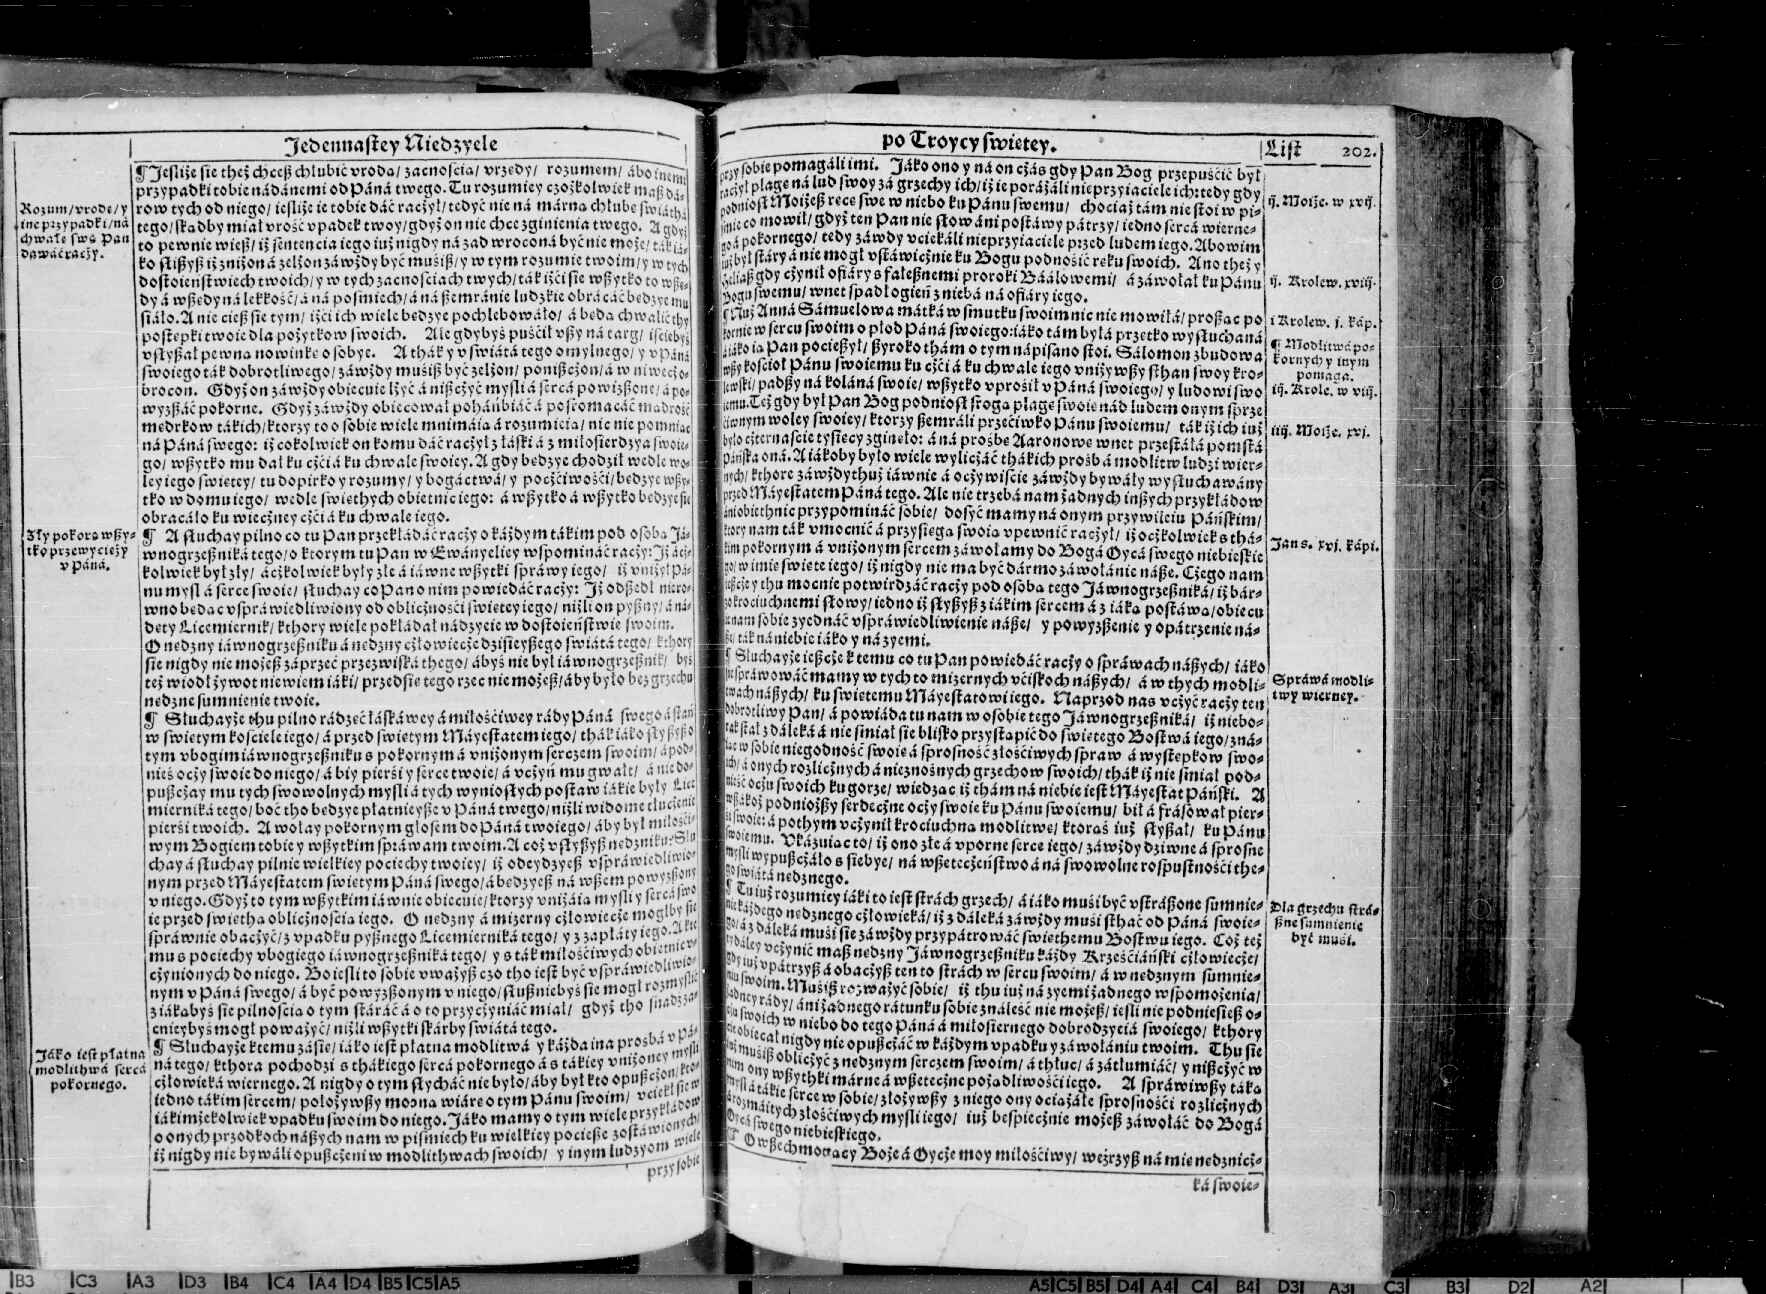 Jedennastey Niedzyele
Rozum/vrode/y
ine przypadki/ná
chwałe swą Pan
dawáć raczy.
Zły pokorą wszy-
tko przewycięży
v Páná.
Jáko iest płatna
modlithwá sercá
pokornego.
¶ Jesliże sie theż chcesz chlubić vrodą/ zacnoscią/ vrzędy/ rozumem/ ábo inemi
przypadki tobie nádánemi od Páná twego. Tu rozumiey czożkolwiek masz dá-
row tych od niego/ iesliże ie tobie dáć raczył/ tedyć nie ná márną chlubę świáthá
tego/ skądby miał vrość vpadek twoy/ gdyż on nie chce zginienia twego. A gdyż
to pewnie wiesz/ iż sentencia iego iuż nigdy ná zad wrocona być nie może/ ták iá-
ko słyszysz iż zniżon á zelżon záwżdy być musisz/ y w tym rozumie twoim/ y w tych
dostoieństwiech twoich/ y w tych zacnościach twych/ ták iżći sie wszytko to wszę-
dy á wszędy ná lekkość/ á ná posmiech/ á ná szemránie ludzkie obrácáć będzye mu
siáło. A nie ciesz sie tym/ iżći ich wiele będzye pochlebowáło/ á będą chwalić thy
postępki twoie dla pożytkow swoich. Ale gdybyś puścił vszy ná targ/ iściebyś
vsłyszał pewną nowinkę o sobye. A thák y v świátá tego omylnego/ y v Páná
swoiego ták dobrotliwego/ záwżdy musisz być zelżon/ poniszczon/ á w niwecz o-
brocon. Gdyż on záwżdy obiecuie lżyć á niszczyć mysli á sercá powyższone/ á po-
wyższáć pokorne. Gdyż záwżdy obiecował pohánbiáć á posromacáć mądrość
mędrkow tákich/ ktorzy to o sobie wiele mnimáią á rozumieią/ nic nie pomniąc
ná Páná swego: iż cokolwiek on komu dáć raczył z łáski á z miłosierdzya swoie-
go/ wszytko mu dał ku czci á ku chwale swoiey. A gdy będzye chodził wedle wo-
ley iego świętey/ tu dopirko y rozumy/ y bogáctwá/ y poczćiwości/ będzye wszy-
tko w domu iego/ wedle świethych obietnic iego: á wszytko á wszytko będzye sie
obracáło ku wieczney czci á ku chwale iego.
¶ A słuchay pilno co tu Pan przekłádáć raczy o káżdym tákim pod osobą Já-
wnogrzeszniká tego/ o ktorym tu Pan w Ewányeliey wspomináć raczy: Iż acz-
kolwiek był zły/ aczkolwiek były złe á iáwne wszytki spráwy iego/ iż vniżył Pá-
nu mysl á serce swoie/ słuchay co Pan o nim powiedáć raczy: Iż odszedł niero-
wno będąc vspráwiedliwiony od obliczności świętey iego/ niżli on pyszny/ á ná-
dęty Licemiernik/ kthory wiele pokłádał nádzyeie w dostoieństwie swoim.
O nędzny iáwnogrzeszniku á nędzny człowiecze dzisieyszego świátá tego/ kthory
sie nigdy nie możesz záprzeć przezwiská thego/ ábyś nie był iáwnogrzesznik/ byś
też wiodł żywot niewiem iáki/ przedsie tego rzec nie możesz/ áby było bez grzechu
nędzne sumnienie twoie.
¶ Słuchayże thu pilno rádzeć łáskáwey á miłościwey rády Páná swego á stań
w świętym kościele iego/ á przed świętym Máyestatem iego/ thák iáko słyszysz o
tym vbogim iáwnogrzeszniku s pokornym á vniżonym serczem swoim/ á pod-
nieś oczy swoie do niego/ á biy pierśi y serce twoie/ á vczyń mu gwałt/ á nie do-
puszczay mu tych swowolnych mysli á tych wyniosłych postaw iákie były Lice
mierniká tego/ boć tho będzye płatnieysze v Páná twego/ niżli widome tłuczenie
pierśi twoich. A wołay pokornym głosem do Páná twoiego/ áby był miłości-
wym Bogiem tobie y wszytkim spráwam twoim. A coż vsłyszysz nędzniku: Słu
chay á słuchay pilnie wielkiey pociechy twoiey/ iż odeydzyesz vspráwiedliwio-
nym przed Máyestatem świętym Páná swego/ á będzyesz ná wszem powyzszony
v niego. Gdyż to tym wszytkim iáwnie obiecuie/ ktorzy vniżáią mysli y sercá swo
ie przed świethą oblicznoscią iego. O nędzny á mizerny człowiecze mogłby sie
spráwnie obaczyć/ z vpadku pysznego Licemierniká tego/ y z zapłáty iego. A kte
mu s pociechy vbogiego iáwnogrzeszniká tego/ y s ták miłościwych obietnic v-
czynionych do niego. Bo iesli to sobie vważysz czo tho iest być vspráwiedliwio-
nym v Páná swego/ á być powyzszonym v niego/ słusznieby­ś sie mogł rozmyslić
z iákąbyś sie pilnością o tym stáráć á o to przyczyniáć miał/ gdyż tho snádz zá-
cnieybyś mogł poważyć/ niżli wszytki skárby świátá tego.
¶ Słuchayże ktemu zásie/ iáko iest płatna modlitwá y káżda ina prosbá v Pá-
ná tego/ kthora pochodzi s thákiego sercá pokornego á s tákiey vniżoney mysli
człowieká wiernego. A nigdy o tym słycháć nie było/ áby był kto opuszczon/ kto
iedno tákim sercem/ położywszy mocną wiárę o tym Pánu swoim/ vciekł sie w
iákimżekolwiek vpadku swoim do niego. Jáko mamy o tym wiele przykłádow
o onych przodkoch nászych nam w piśmiech ku wielkiey pociesze zostáwionych/
iż nigdy nie bywáli opuszczeni w modlithwach swoich/ y inym ludzyom wiele
przy sobie
po Troycy świętey.
List 202.
przy sobie pomagáli imi. Jáko ono y ná on czás gdy Pan Bog przepuścić był
raczył plagę ná lud swoy zá grzechy ich/ iż ie porażáli nieprzyiaciele ich: tedy gdy
podniosł Moiżesz ręce swe w niebo ku Pánu swemu/ chociaż tám nie stoi w pi-
śmie co mowił/ gdyż ten Pan nie słow áni postáwy pátrzy/ iedno sercá wierne-
go á pokornego/ tedy záwdy vciekáli nieprzyiaciele przed ludem iego. Abowim
iuż był stáry á nie mogł vstáwicznie ku Bogu podnośić ręku swoich. Ano theż y
Heliasz gdy czynił ofiáry s fałesznemi proroki Báálowemi/ á záwołał ku Pánu
Bogu swemu/ wnet spadł ogień z niebá ná ofiáry iego.
¶ Nuż Anná Sámuelowá mátká w smutku swoim nic nie mowiłá/ prosząc po
kornie w sercu swoim o płod Páná swoiego: iáko tám byłá prędko wysłuchaná
á iáko ią Pan pocieszył/ szyroko thám o tym nápisano stoi. Sálomon zbudowa
wszy kościoł Pánu swoiemu ku czci á ku chwale iego vniżywszy sthan swoy kro-
lewski/ padszy ná koláná swoie/ wszytko vprosił v Páná swoiego/ y ludowi swo
iemu. Też gdy był Pan Bog podniosł srogą plagę swoię nád ludem onym sprze
ciwnym woley swoiey/ ktorzy szemráli przećiwko Pánu swoiemu/ ták iż ich iuż
było czternaście tysięcy zginęło: á ná prosbę Aaronowę wnet przestáłá pomstá
Páńska oná. A iákoby było wiele wyliczáć thákich prosb á modlitw ludzi wier-
nych/ kthore záwżdy thuż iáwnie á oczywiście záwżdy bywáły wysłuchawány
przed Máyestatem Páná tego. Ale nie trzebá nam żadnych inszych przykłádow
áni obiethnic przypomináć sobie/ dosyć mamy ná onym przywileiu Páńskim/
ktory nam ták vmocnić á przysięgą swoią vpewnić raczył/ iż oczkolwiek s thá-
kim pokornym á vniżonym sercem záwołamy do Bogá Oycá swego niebieskie
go/ w imię święte iego/ iż nigdy nie ma być dármo záwołánie násze. Czego nam
ieszcze y thu mocnie potwirdzáć raczy pod osobą tego Jáwnogrzeszniká/ iż bár-
zo krociuchnemi słowy/ iedno iż słyszysz z iákim sercem á z iáką postáwą/ obiecu
ie nam sobie zyednáć vspráwiedliwienie násze/ y powyzszenie y opátrzenie ná-
sze/ ták ná niebie iáko y ná zyemi.
¶ Słuchayże ieszcze k temu co tu Pan powiedáć raczy o spráwach nászych/ iáko
sie spráwowáć mamy w tych to mizernych vciskoch nászych/ á w thych modli-
twach nászych/ ku świętemu Máyestatowi iego. Naprzod nas vczyć raczy ten
dobrotliwy Pan/ á powiáda tu nam w osobie tego Jáwnogrzeszniká/ iż niebo-
rak stał z dáleká á nie śmiał sie blisko przystąpić do świętego Bostwá iego/ zná-
iąc w sobie niegodność swoię á sprosność złościwych spraw á występkow swo-
ich/ á onych rozlicznych á nieznośnych grzechow swoich/ thák iż nie śmiał pod-
nieść oczu swoich ku gorze/ wiedząc iż thám ná niebie iest Máyestat Páński. A
wszákoż podnioższy serdeczne oczy swoie ku Pánu swoiemu/ bił á frásował pier-
śi swoie: á pothym vczynił krociuchną modlitwę/ ktorąś iuż słyszał/ ku Pánu
swoiemu. Vkázuiąc to/ iż ono złe á vporne serce iego/ záwżdy dziwne á sprosne
mysli wypuszczáło s siebye/ ná wszeteczeństwo á ná swowolne rospustności the-
go świátá nędznego.
¶ Tu iuż rozumiey iáki to iest strách grzech/ á iáko musi być vstrászone sumnie-
nie káżdego nędznego człowieká/ iż z dáleká záwżdy musi stháć od Páná swoie-
go/ á z dáleká musi sie záwżdy przypátrowáć świethemu Bostwu iego. Coż też
ty dáley vczynić masz nędzny Jáwnogrzeszniku káżdy Krześciáński człowiecze/
gdy iuż vpátrzysz á obaczysz ten to strách w sercu swoim/ á w nędznym sumnie-
niu swoim. Musisz rozważyć sobie/ iż thu iuż ná zyemi żadnego wspomożenia/
żadney rády/ áni żadnego rátunku sobie znaleść nie możesz/ iesli nie podniesiesz o-
czu swoich w niebo do tego Páná á miłosiernego dobrodzyeiá swoiego/ kthory
cie obiecał nigdy nie opuszczáć w káżdym vpadku y záwołániu twoim. Thu sie
iuż musisz obliczyć z nędznym serczem swoim/ á thłuc/ á zátłumiáć/ y niszczyć w
nim ony wszythki márne á wszeteczne pożądliwości iego. A spráwiwszy táką
mysl á tákie serce w sobie/ złożywszy z niego ony ociążáłe sprosności rozlicznych
á rozmáitych złościwych mysli iego/ iuż bespiecznie możesz záwołáć do Bogá
Oycá swego niebieskiego.
¶ O wszechmogący Boże á Oycze moy miłościwy/ weźrzysz ná mię nędznicz-
ká swoie-
ij. Moiże. w xvij.
ij. Krolew. xviij.
i Krolew. j. káp.
¶ Modlitwá po-
kornych y inym
pomaga.
iij. Krole. w viij.
iiij. Moiże. xvj.
Jan s. xvj. kápi.
Spráwá modli-
twy wierney.
Dla grzechu strá-
szne sumnienie
być musi.
B3 C3 A3 D3 B4 C4 A4 D4 B5 C5 A5
A5 C5 B5 D4 A4 C4 B4 D3 A3 C3 B3 D2 A2